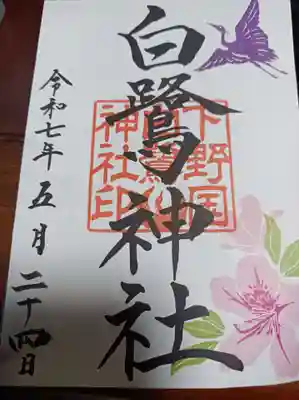 白鷺神社
下野国
白鷺
神社印
令和七年五月二十四日